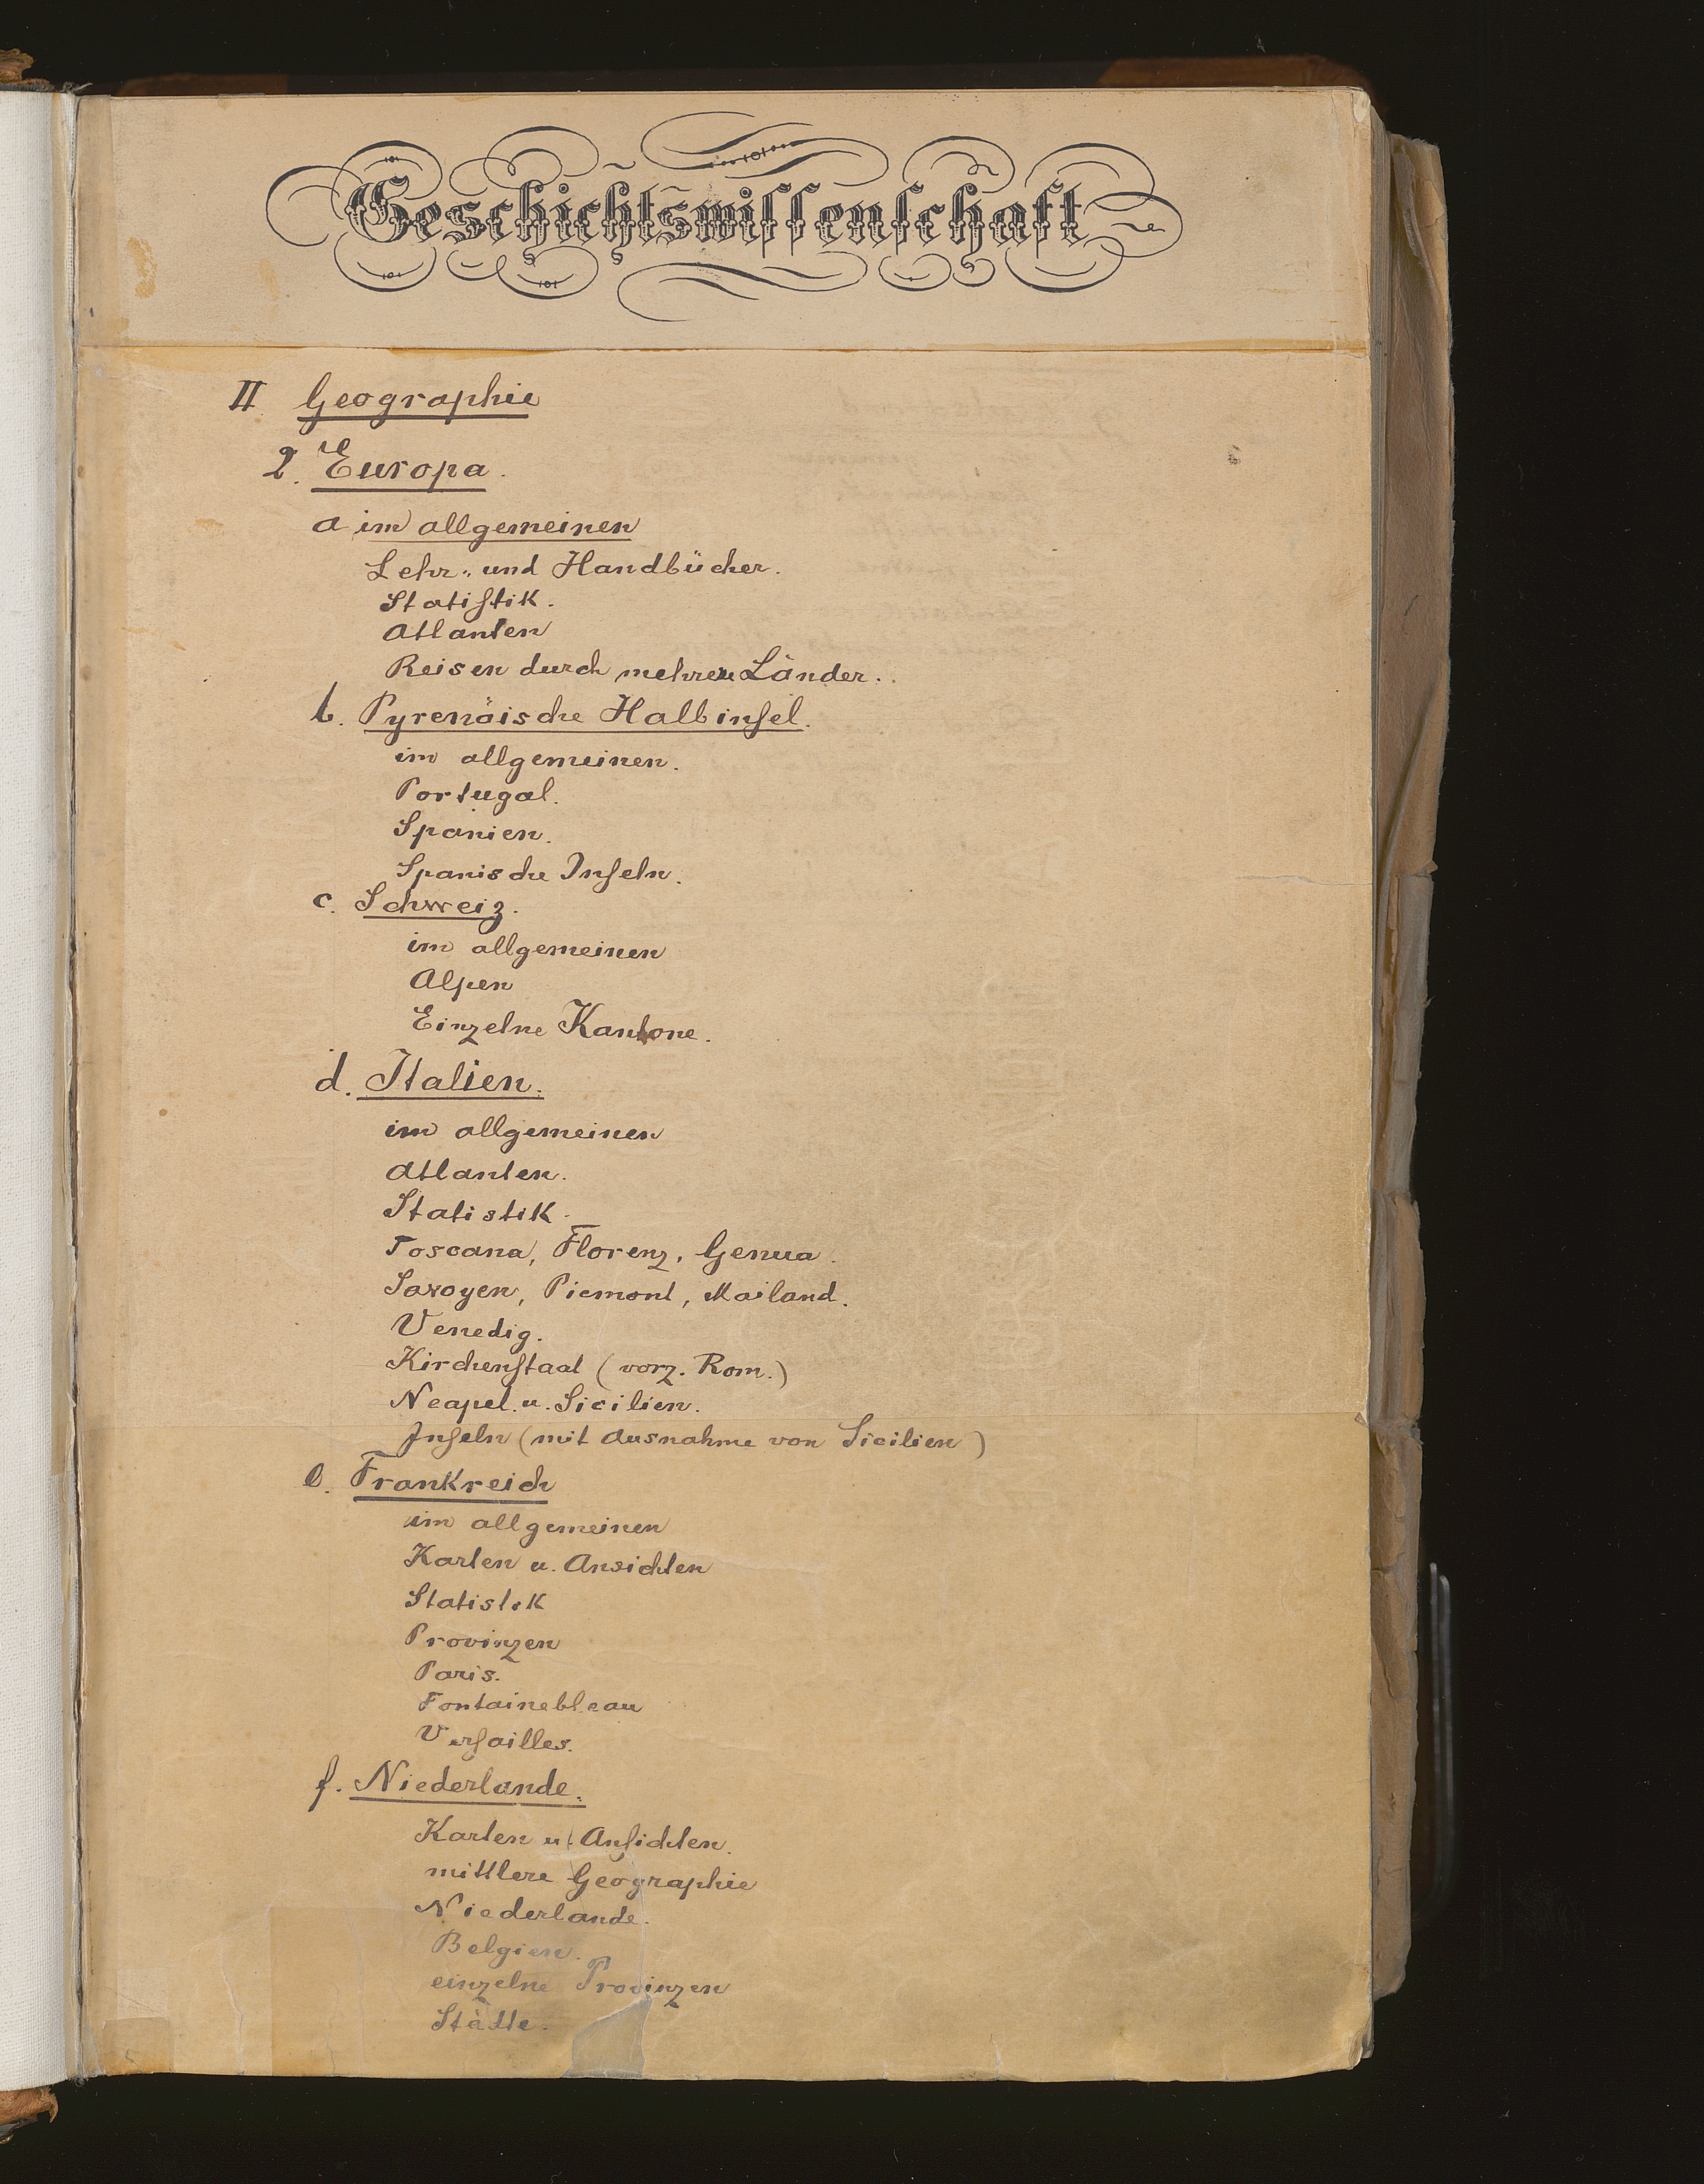 Geschichtswiſſenſchaft
II Geographie
2. Europa.
a im allgemeinen
Lehr- und Handbücher.
Statiſtik.
Atlanten
Reisen durch mehrere Länder.
b. Pyrenäische Halbinſel.
im allgemeinen.
Portugal.
Spanien.
Spanische Inſeln.
c. Schweiz.
im allgemeinen
Alpen
Einzelne Kantone.
d. Italien.
im allgemeinen
Atlanten.
Statistik.
Toscana, Florenz, Genua.
Savoyen, Piemont, Mailand.
Venedig.
Kirchenſtaat (vorz. Rom.)
Neapel u. Sicilien.
Inſeln (mit Ausnahme von Sicilien)
e. Frankreich
im allgemeinen
Karten u. Ansichten
Statistik
Provinzen
Paris.
Fontainebleau
Verſailles.
f. Niederlande.
Karten u. Anſichten.
mittlere Geographie
Niederlande.
Belgien.
einzelne Provinzen
Städte.